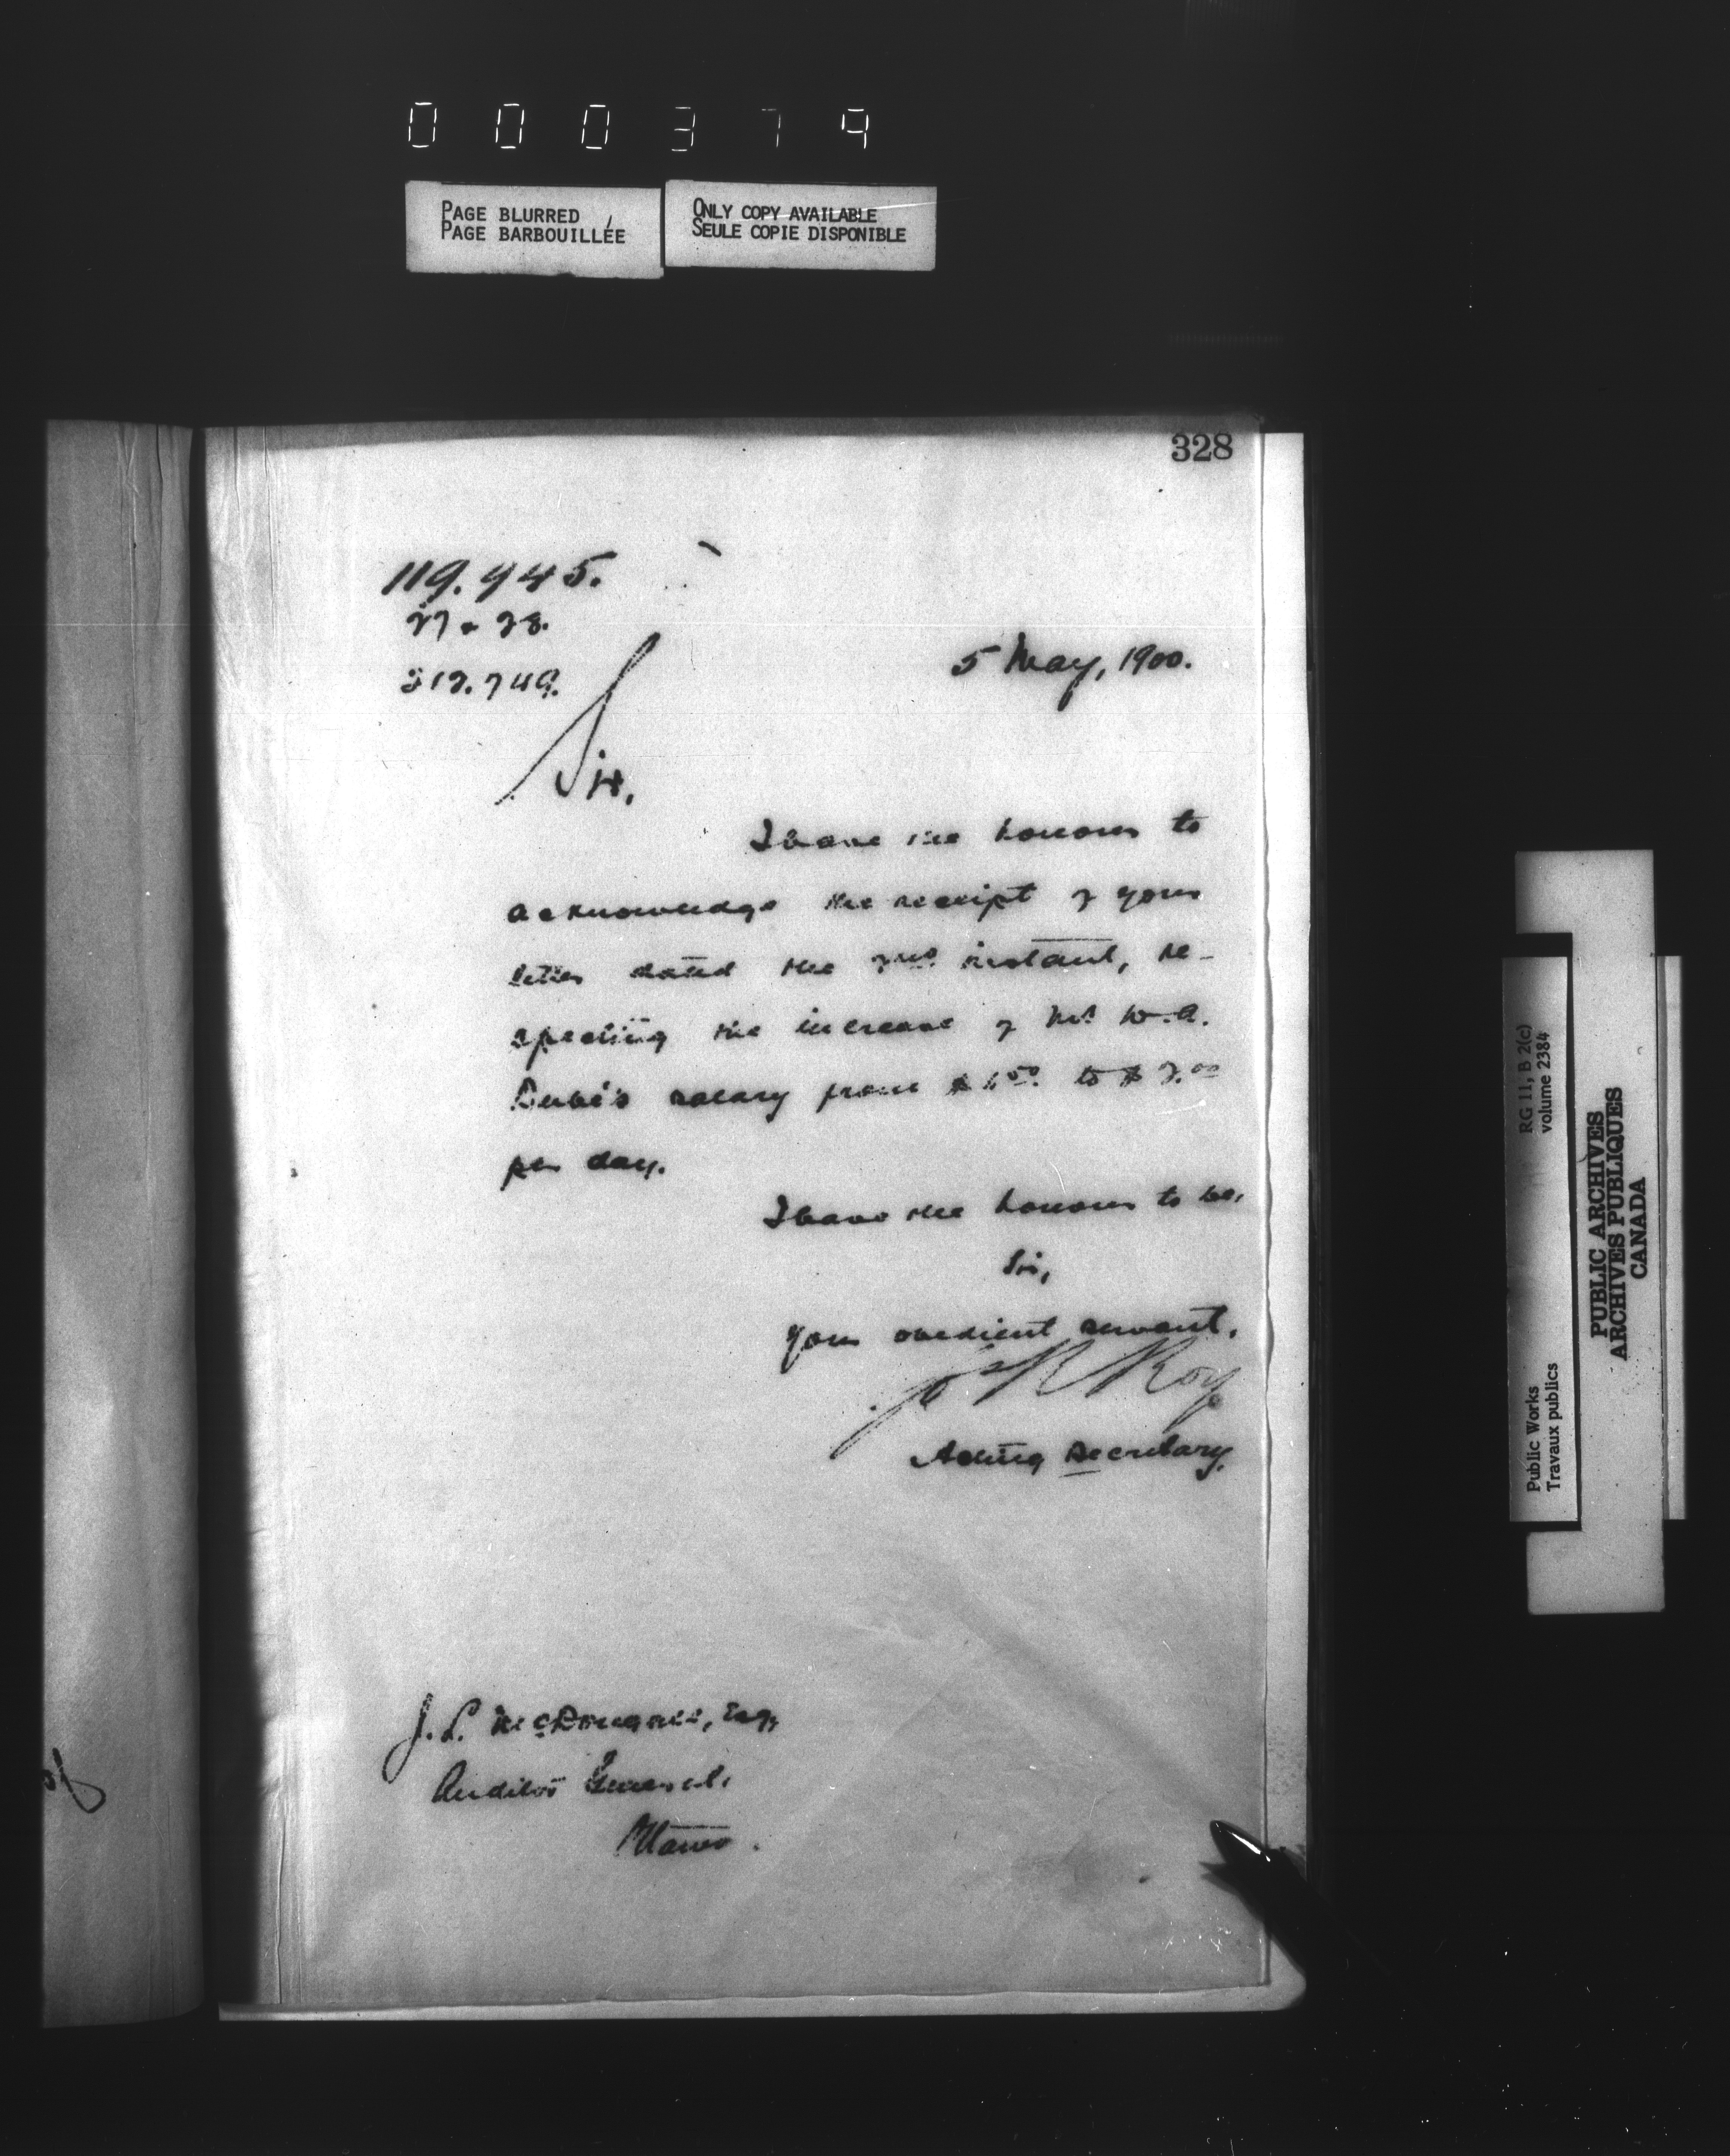 000379
PAGE BLURRED
PAGE BARBOUILLÉE
ONLY COPY AVAILABLE
SEULE COPIE DISPONIBLE
328
119.945.
27 & 28.
212.749.
5 May, 1900.
Sir,
I have the honour to
acknowledge the receipt of your
letter dated the 2nd instant, re-
specting the increase of Mr W.A.
Dubé's salary from $1.50 to $2.00
per day.
I have the honour to be,
Sir,
Your obedient servant,
Jos R Roy
Acting Secretary.
J. L. McDougall, Esq,
Auditor General,
Ottawa.
RG 11, B 2(c)
volume 2384
Public Works
Travaux publics
PUBLIC ARCHIVES
ARCHIVES PUBLIQUES
CANADA